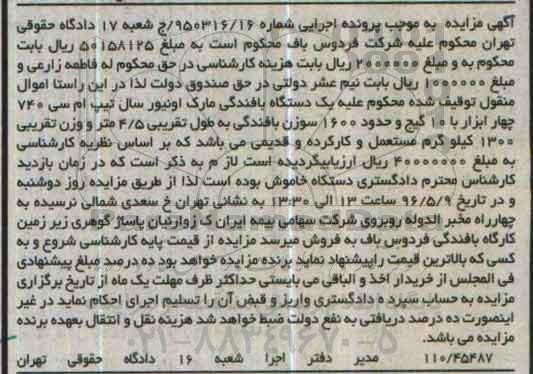 آگهی مزایده به موجب پرونده اجرایی شماره ۹۵۰۳۱۶/۱۶/ج شعبه ۱۷ دادگاه حقوقی
تهران محکوم علیه شرکت فردوس باف محکوم است به مبلغ ۵۰۱۵۸۱۲۵ ریال بابت
محکوم به و مبلغ ۲۰۰۰۰۰۰ ریال بابت هزینه کارشناسی در حق محکوم له فاطمه زارعی و
مبلغ ریال بابت نیم عشر دولتی در حق صندوق دولت لذا در این راستا اموال
منقول توقیف شده محکوم علیه یک دستگاه بافندگی مارک اونیور سال تیپ ام سی ۷۴۰
چهار ابزار با ۱۰ گیج و حدود ۱۶۰۰ سوزن بافندگی به طول تقریبی ۴/۵ متر و وزن تقریبی
۱۳۰۰ کیلو گرم مستعمل و کارکرده و قدیمی می باشد که بر اساس نظریه کارشناسی
به مبلغ ۴۰۰۰۰۰۰۰ ریال ارزیابیگردیده است لاز م به ذکر است که در زمان بازدید
کارشناس محترم دادگستری دستگاه خاموش بوده است لذا از طریق مزایده روز دوشنبه
و در تاریخ ۹۶/۵/۹ ساعت ۱۳ الی ۱۳:۳۰ به نشانی تهران خ سعدی شمالی نرسیده به
چهارراه مخبر الدوله روبروی شرکت سهامی بیمه ایران ک زوارئیان پاساژ گوهری زیر زمین
کارگاه بافندگی فردوس باف به فروش میرسد مزایده از قیمت پایه کارشناسی شروع و به
کسی که بالاترین قیمت راپیشنهاد نماید برنده مزایده خواهد بود ده درصد مبلغ پیشنهادی
فی المجلس از خریدار اخذ و الباقی می بایستی حداکثر ظرف مهلت یک ماه از تاریخ برگزاری
مزایده به حساب سپرد ه دادگستری واریز و قبض آن را تسلیم اجرای احکام نماید در غیر
اینصورت ده درصد دریافتی به نفع دولت ضبط خواهد شد هزینه نقل و انتقال بعهده برنده
مزایده می باشد.
۰۲۱-۸۸۳۴۹۶۷۰-۵
۱۱۰/۴۵۴۸۷ مدیر دفتر اجرا شعبه ۱۶ دادگاه حقوقی تهران